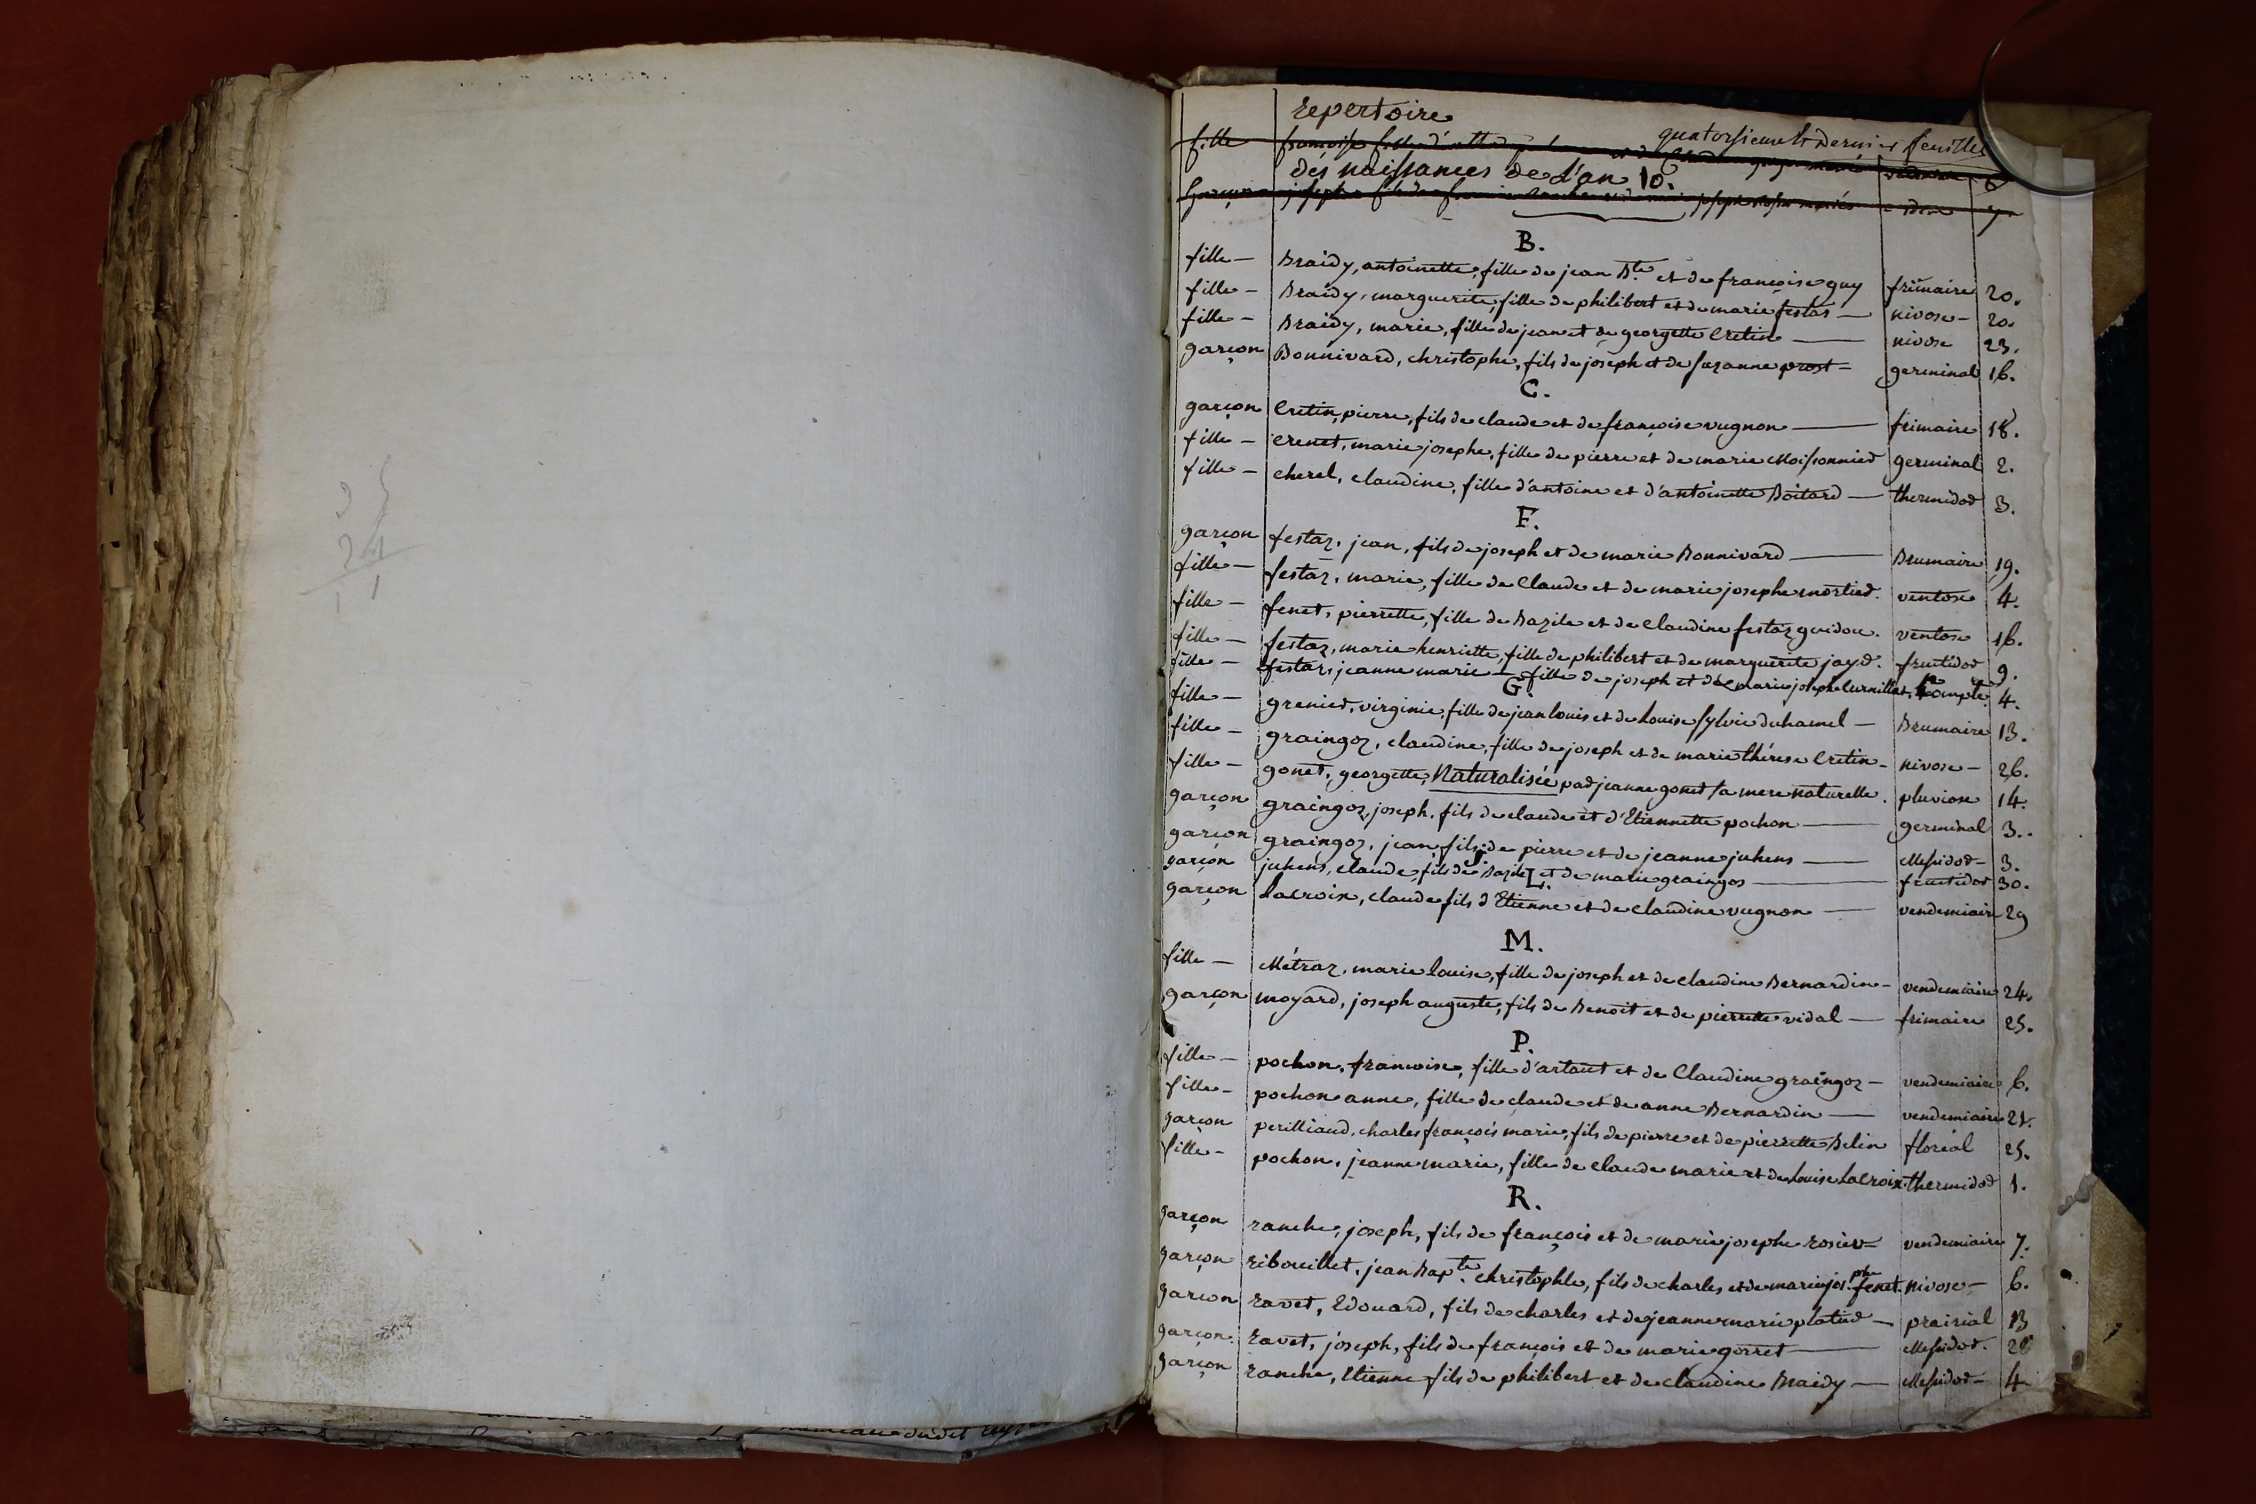 3 5
2 4
1 1
repertoire
quatorsieme et dernier feuillet
fille
des naissances de l'an 10.
garçon joseph fils de joseph rosier mariés idem 7
B.
fille — Braidy, antoinette, fille de jean Bte. et de françoise guy frimaire 20.
fille — Braidy, marguerite, fille de philibert et de marie festas — nivose — 20.
fille — Braidy, marie, fille de jean et de georgette Cretin — nivose 23.
garçon Bonnivard, christophe, fils de joseph et de suzanne prost — germinal 16.
C.
garçon Cretin, pierre, fils de claude et de françoise vugnon — frimaire 18.
fille — crenet, marie josephe, fille de pierre et de marie Moissonnier germinal 2.
fille — cherel, claudine, fille d'antoine et d'antoinette Boitard — thermidor 3.
F.
garçon festaz, jean, fils de joseph et de marie Bonnivard — Brumaire 19.
fille — festaz, marie, fille de Claude et de marie josephe mortier. ventose 4.
fille — fenet, pierrette, fille de Bazile et de Claudine festaz guidou. ventose 16.
fille — festaz, marie henriette, fille de philibert et de marguerite jayr. fructidor 9.
fille — festaz, jeanne marie — fille de joseph et de marie josephe curnillat, compte. 4.
G.
fille — grenier, virginie, fille de jean louis et de louise sylvie duhamel — Brumaire 13.
fille — graingoz, claudine, fille de joseph et de marie thérese Cretin — nivose — 26.
fille — gonet, georgette, Naturalisée par jeanne gonet sa mere naturelle. pluviose 14.
garçon graingoz, joseph, fils de claude et d'Etiennette pochon — germinal 3.
garçon graingoz, jean, fils de pierre et de jeanne juhens — Messidor — 3.
J.
garçon juhens, claude, fils de Bazile et de marie graingoz — fructidor 30.
L.
garçon Lacroix, claude fils d'Etienne et de claudine vugnon — vendemiaire 29
M.
fille — Métraz, marie louise, fille de joseph et de claudine Bernardin — vendemiaire 24.
garçon moyard, joseph auguste, fils de Benoit et de pierrette vidal — frimaire 25.
P.
fille — pochon, francoise, fille d'artaut et de Claudine graingoz — vendemiaire 6.
fille — pochon anne, fille de claude et de anne Bernardin — vendemiaire 21.
garçon perilliaud, charles françois marie, fils de pierre et de pierrette Belin floréal 25.
fille — pochon, jeanne marie, fille de claude marie et de louise Lacroix. thermidor 1.
R.
garçon ranche, joseph, fils de françois et de marie josephe rosier — vendemiaire 7.
garçon ribouillet, jean Bapte. christophle, fils de charles et de marie josphe. fenet. nivose — 6.
garcon ravet, Edouard, fils de charles et de jeanne marie platier — prairial 13
garçon. ravet, joseph, fils de françois et de marie gorret — Messidor. 28
garçon ranche, Etienne fils de philibert et de claudine Braidy — Messidor — 4